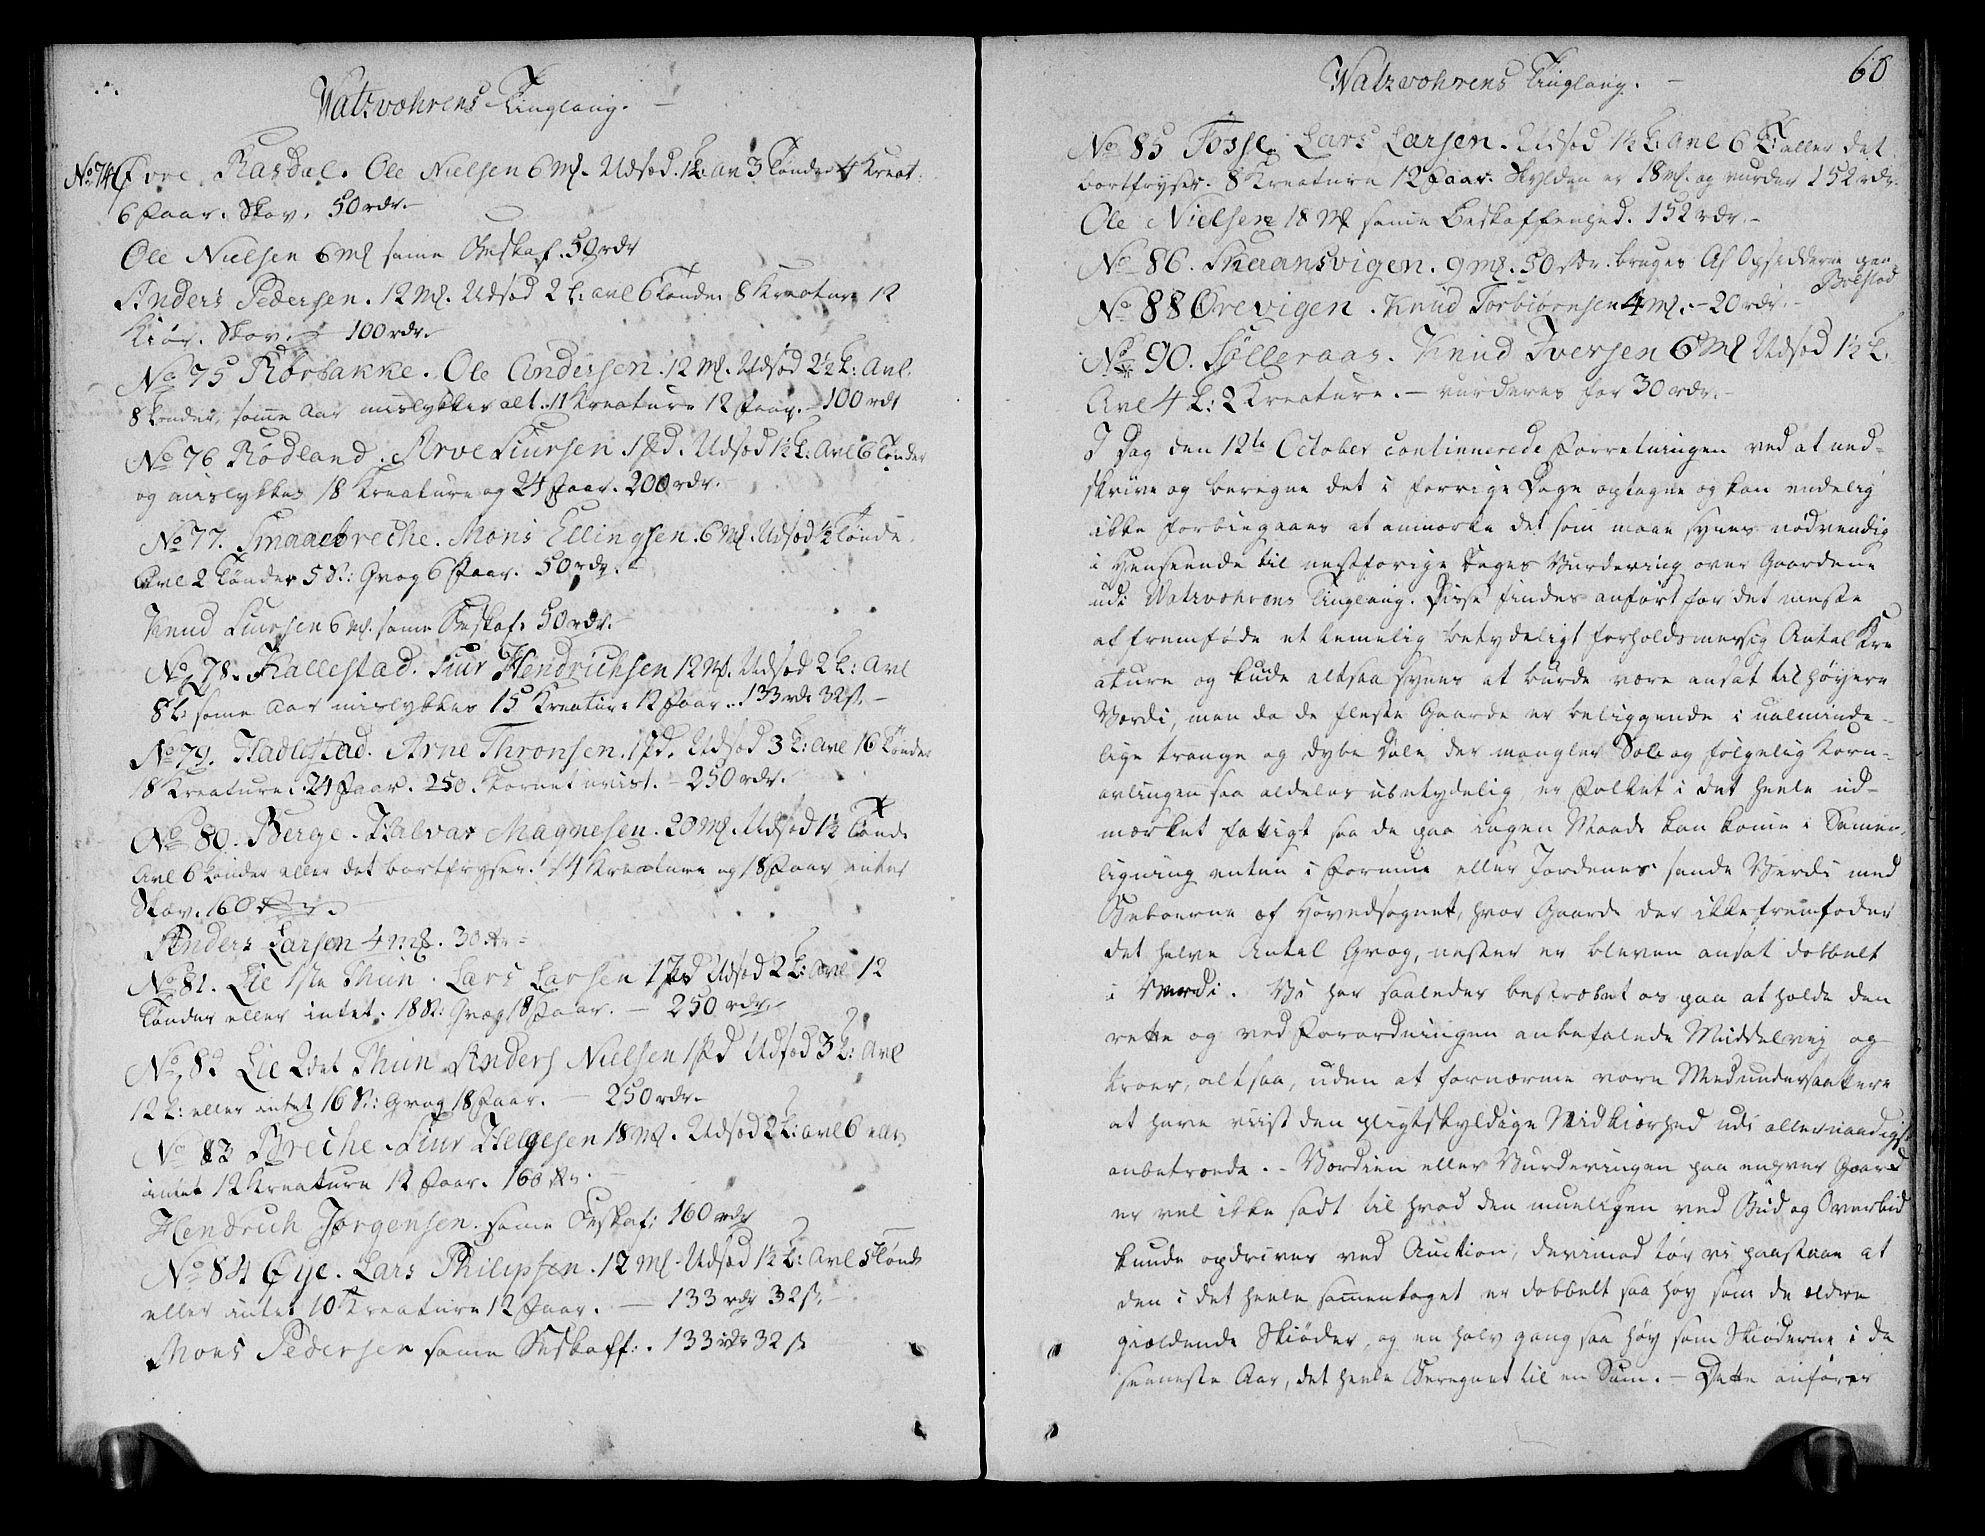 Watzvohrens Tinglaug.
No 74 Øvre Rasdal. Ole Nielsen 6 ml. Udsæd. 1 t: av 3 Tønder 4 Kreat:
6 Faar. Skov. 50 rdr.
Ole Nielsen 6 ml same Beskaf. 50 rdr
Anders Pedersen. 12 ml. Udsæd 2 t: avl 6 Tønde 8 Kreature 12
Kiør. Skov. 100 rdr.
No 75 Rørbakke. Ole Andersen. 12 ml. Udsæd 2½ t: Avl.
8 tønder, somme Aar mislykkes alt. 11 Kreature 12 Faar. 100 rdr
No 76 Rødland. Arve Siursen 1 pd. Udsæd 1½ t: Avl 6 Tønder
og mislykkes 18 Kreature og 24 Faar. 200 rdr.
No 77. Smaabreche. Mons Ellingsen. 6 ml. Udsæd ½ Tønde.
Avl 2 Tønder 5 St: Qvæg 6 Faar. 50 rdr.
Knud Siursen 6 ml. same Beskaf: 50 rdr.
No 78. Hallestad. Siur Hendrichsen 12 ml. Udsæd 2 t: Avl
8 t: some Aar mislykkes 15 Kreature 12 Faar.. 133 rdr 32 s. -
No 79. Hadlestad. Arne Thronsen. 1 pd. Udsæd 3 t: avl 16 Tønder
18 Kreature. 24 Faar. 250. Kornet uvist. - 250 rdr.
No 80. Berge. Halvar Magnesen. 20 ml. Udsæd 1½ Tønde
Avl 6 tønder eller det bortfryser. 14 Kreature og 18 Faar intet
Skov. 160 rdr.
Anders Larsen 4 ml. 30 rdr
No 81. Lie 1ste Thun. Lars Larsen 1 pd Udsæd 2 t: Avl 12
Tønder eller intet. 18 St: Qvæg 18 Faar. - 250 rdr.
No 82 Lie 2det Thun Anders Nielsen 1 pd Udsæd 3 t: Avl
12 t: eller intet 16 St: Qvæg 18 Faar. - 250 rdr.
No 83 Breche. Siur Helgesen 18 ml. Udsæd 2 t: avl 6 eller
intet 12 Kreature 12 Faar. 160 rdr.
Hendrich Jørgensen. same Beskaf: 160 rdr
No 84 Eye. Lars Philipsen. 12 ml. Udsæd 1½ t: Avl 5 tønde
eller intet 10 Kreature 12 Faar. - 133 rdr 32 s.
Mons Pedersen same Beskaff: . 133 rdr 32 s
60
Watzvohrens Tinglaug. -
No 85 Fosse Lars Larsen. Udsæd 1½ t: avl 6 t: eller det
bortfryser. 8 Kreature 12 Faar. Skylden er 18 ml. og vurder 152 rdr.
Ole Nielsen 18 ml same Beskaffenhed. 152 rdr. -
No 86. Skaansvigen. 9 ml. 50 rdr. bruges Af Opsidderne paa
Bolstad
No 88 Ørevigen. Knud Torbiørnsen 4 ml. - 20 rdr. -
No 90. Sølleraas. Knud Iversen 6 ml Udsæd 1½ t.
Avl 4 t: 2 Kreature. - vurderes for 30 rdr. -
I Dag den 12te October continuerede Forretningen ved at ned-
skrive og beregne det i forrige Dage optagne og kan endelig
ikke forbiegaaes at anmærke det som maae synes nødvendig
i Henseende til næstforige Dages Vurdering over Gaardene
udi Watzvohrens Tinglaug. Disse findes anført for det meste
at fremføde et temelig betydeligt forholdsmessig Antal Kre
ature og kude altsaa synes at burde være ansat til høyere
Værdi, men da de fleste Gaarde er beliggende i ualminde-
lige trange og dybe Dale der mangler Sol og følgelig Korn-
avlingen saa aldeles ubetydelig, er Folket i det heele ud-
mærket fattigt saa de paa ingen Maade kan kome i Samen-
ligning enten i Formue eller Jordenes sande Værdi med
Beboerne af Hovedsognet, hvor Gaarde der ikke fremføder
det halve Antal Qvæg, næsten er bleven ansat dobbelt
i Værdi. Vi har saaledes bestræbet os paa at holde den
rette og ved Forordningen anbefalede Middelvej og
troer, altsaa, uden at fornærme vore Medundersaattere
at have viist den pligtskyldige Nidkiærhed udi allernaadigst
anbetroede. - Værdien eller Vurderingen paa enhver Gaard
er vel ikke sadt til hvad den mueligen ved Bud og Overbud
kunde opdrives ved Auction, derimod tør vi paastaae at
den i det heele samentaget er dobbelt saa høy som de ældre
gieldende Skiøder, og en halv gang saa høy som Skiøderne i de
seeneste Aar, det heele beregnet til en Sum. - Dette anfører